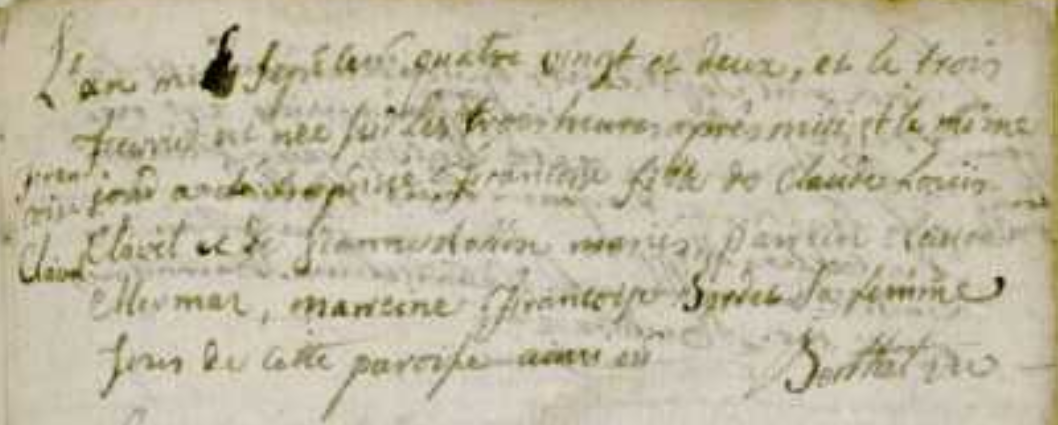 L'an mil sept cent quatre vingt et deux, et le trois
fevrier est née sur les trois heures après midi, et le même
jour a été baptisée Françoise fille de Claude Louis
Clavel et de mariés, parrin Claude
Mermet, marreine Françoise sa femme
tous de cette paroisse ainsi est Berthet vic
fran
oise
Clavel